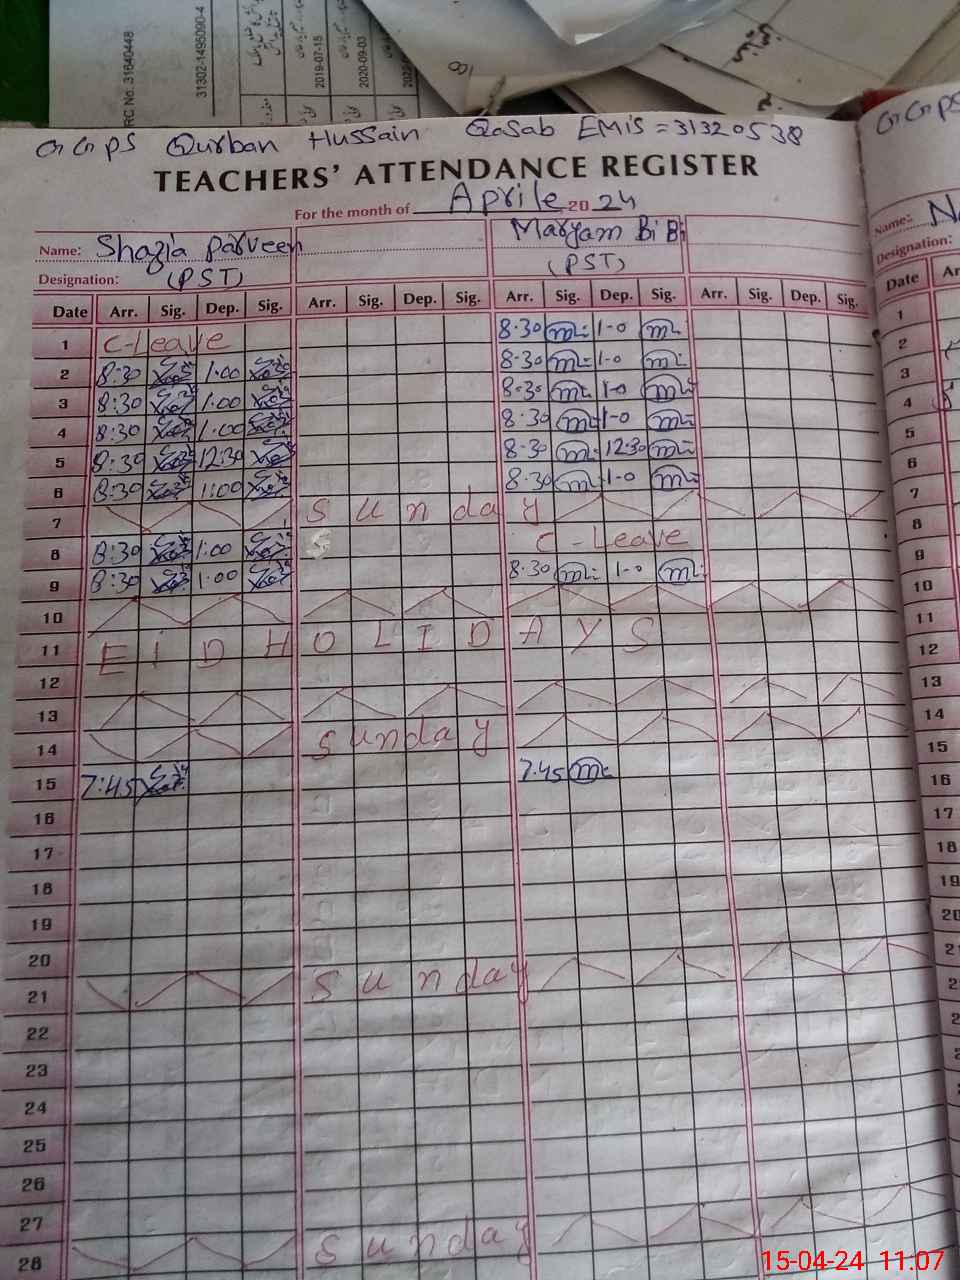 RC No. 31640448
31302-1495090-4
2019-07-15
2020-09-03
GGPS Qurban Hussain Qasab EMIS = 31320538
TEACHERS' ATTENDANCE REGISTER
For the month of Aprile 2024
Name: Shazia Parveen Maryam BiBi
Designation: (PST) (PST)
Date Arr. Sig. Dep. Sig. Arr. Sig. Dep. Sig. Arr. Sig. Dep. Sig. Arr. Sig. Dep. Sig.
1 C-Leave 8.30 m 1-0 m
2 8:30 1:00 8.30 m 1-0 m
3 8:30 1:00 8.30 m 1-0 m
4 8:30 1:00 8.30 m 1-0 m
5 8:30 12:30 8.30 m 12:30 m
6 8:30 1:00 8.30 m 1-0 m
7 Sunday
8 8:30 1:00 S C-Leave
9 8:30 1:00 8.30 m 1-0 m
10
11 EiD HOLIDAYS
12
13
14 Sunday
15 7:45 7.45 m
16
17
18
19
20
21 Sunday
22
23
24
25
26
27
28 Sunday
GGPS
Name:
Designation:
Date
1
2
3
4
5
6
7
8
9
10
11
12
13
14
15
16
17
18
19
20
15-04-24 11:07